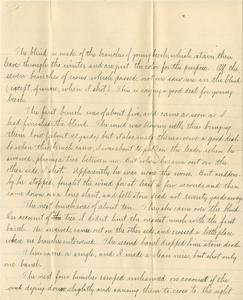 The blind is made of the branches of young beech, which retain their
leaves through the winter and are just the color for the purpose. Of the
seven bunches of crows which passed, not one saw me in the blind
(except, of course, when I shot). This is saying a good deal for young
beech.
The first bunch was about five, and came as soon as I
had finished the blind. The wind was blowing well, thus bringing
them low (about 25 yards) but it also made them swerve a good deal.
So when this bunch came, I was about to pull on the leader when he
swerved, plump tree between us. But when he came out on the
other side, I shot. Apparently he was none the worse. But sudden-
ly he stopped, fought the wind for at least a few seconds and then
came down in a long slant, and fell stone dead seventy yards away.
The next bunch was of about ten. They also came over the blind.
On account of the tree I didn't hit the nearest much with the first
barrel. He swerved, came out on the other side and crossed a little place
where no branches intervened. The second barrel dropped him stone dead.
Then came a single, and I made a clean miss, but shot only
one barrel.
The next four bunches escaped unharmed on account of the
wind dying down slightly and causing them to cross to the right